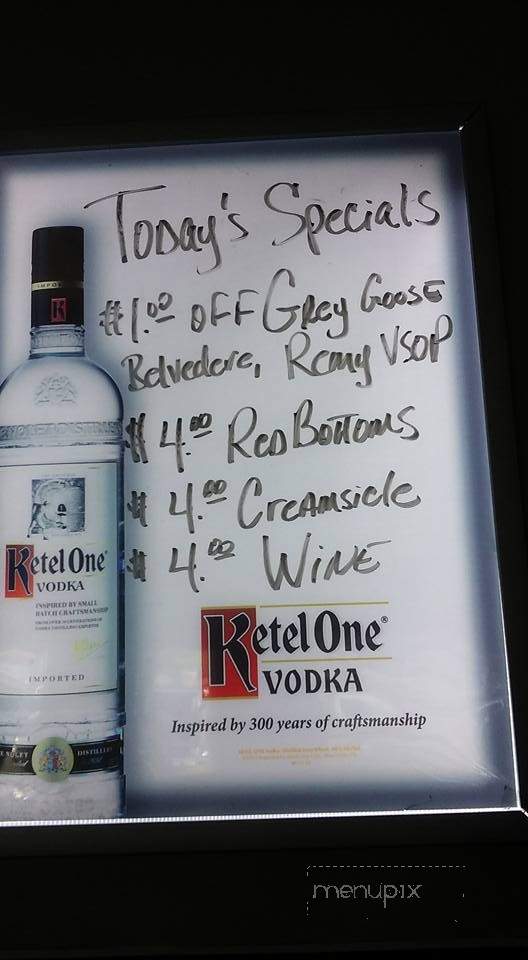 Today's Specials
$1.00 OFF Grey Goose
Belvedere, Remy VSOP
$4.00 Red Bottoms
$4.00 Creamsicle
$4.00 Wine
Ketel One®
VODKA
Inspired by 300 years of craftsmanship
K
Ketel One®
VODKA
INSPIRED BY SMALL
BATCH CRAFTSMANSHIP
IMPORTED
DISTILLERY
menupix